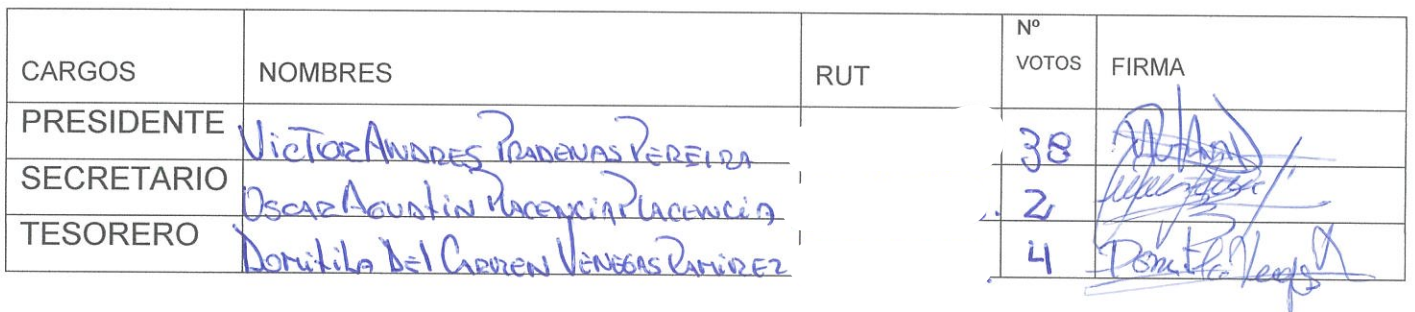 CARGOS NOMBRES RUT Nº VOTOS FIRMA
PRESIDENTE Victor Andres Pradenas Pereira 38
SECRETARIO Oscar Agustin Placencia Placencia 2
TESORERO Domitila Del Carmen Venegas Ramirez 4 Domitila Venegas